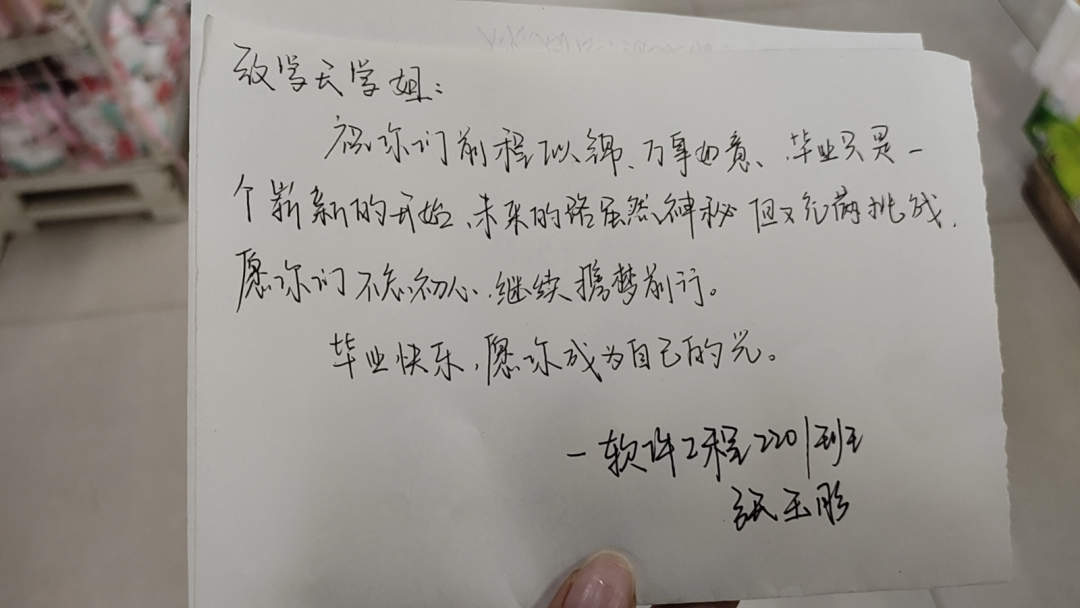 致学长学姐:
祝你们前程似锦、万事如意、毕业只是一
个崭新的开始、未来的路虽然神秘但又充满挑战,
愿你们不忘初心,继续携梦前行。
毕业快乐,愿你成为自己的光。
—软件工程2201班
张玉彤